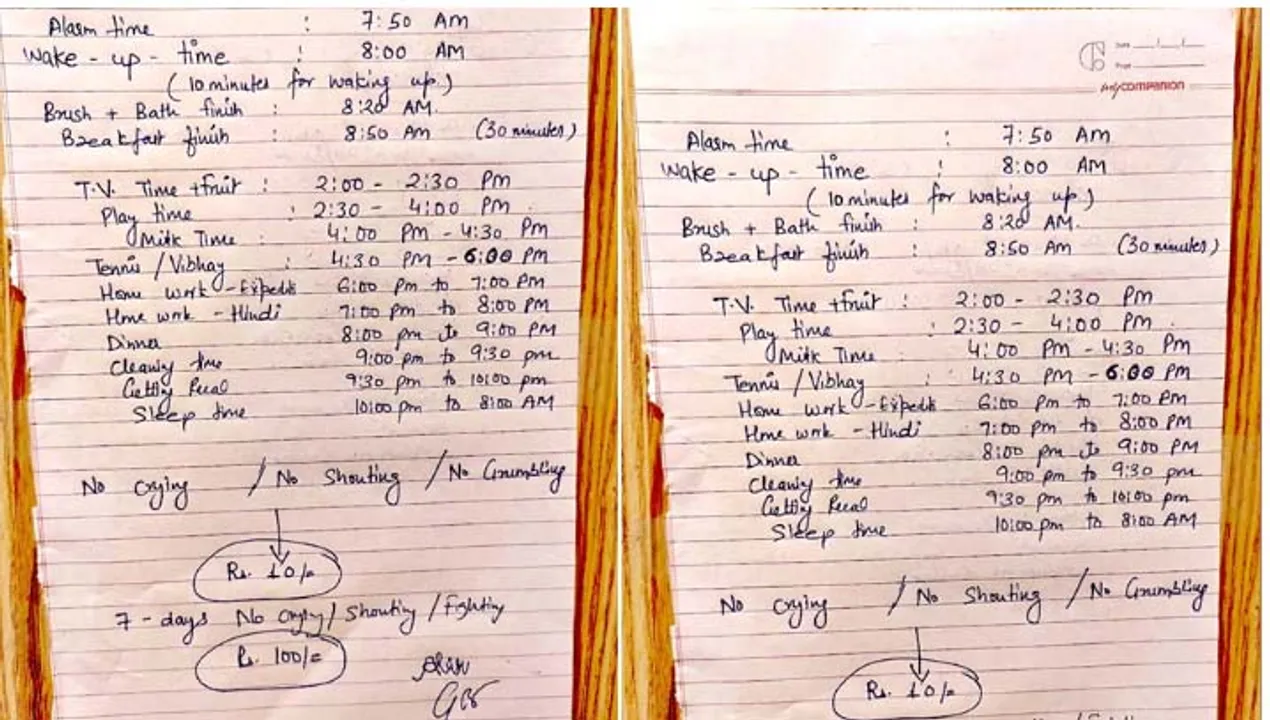 Alarm time : 7:50 AM
Wake-up-time : 8:00 AM
(10 minutes for waking up.)
Brush + Bath finish : 8:20 AM.
Breakfast finish : 8:50 AM (30 minutes)
T.V. Time + fruit : 2:00 - 2:30 PM
Play time : 2:30 - 4:00 PM
Milk Time : 4:00 PM - 4:30 PM
Tennis / Vibhay : 4:30 PM - 6:00 PM
Home work - 6:00 Pm to 7:00 PM
Home work - Hindi 7:00 pm to 8:00 PM
Dinner 8:00 pm to 9:00 PM
Cleaning time 9:00 pm to 9:30 pm
Getting 9:30 pm to 10:00 pm
Sleep time 10:00 pm to 8:00 AM
No Crying / No Shouting / No Grumbling
Rs. 10/=
7-days No Crying / Shouting / Fighting
Rs. 100/=
Date
Page
companion
Alarm time : 7:50 AM
Wake-up-time : 8:00 AM
(10 minutes for waking up.)
Brush + Bath finish : 8:20 AM.
Breakfast finish : 8:50 AM (30 minutes)
T.V. Time + fruit : 2:00 - 2:30 PM
Play time : 2:30 - 4:00 PM
Milk Time : 4:00 PM - 4:30 PM
Tennis / Vibhay : 4:30 PM - 6:00 PM
Home work - 6:00 Pm to 7:00 PM
Home work - Hindi 7:00 pm to 8:00 PM
Dinner 8:00 pm to 9:00 PM
Cleaning time 9:00 pm to 9:30 pm
Getting 9:30 pm to 10:00 pm
Sleep time 10:00 pm to 8:00 AM
No Crying / No Shouting / No Grumbling
Rs. 10/=